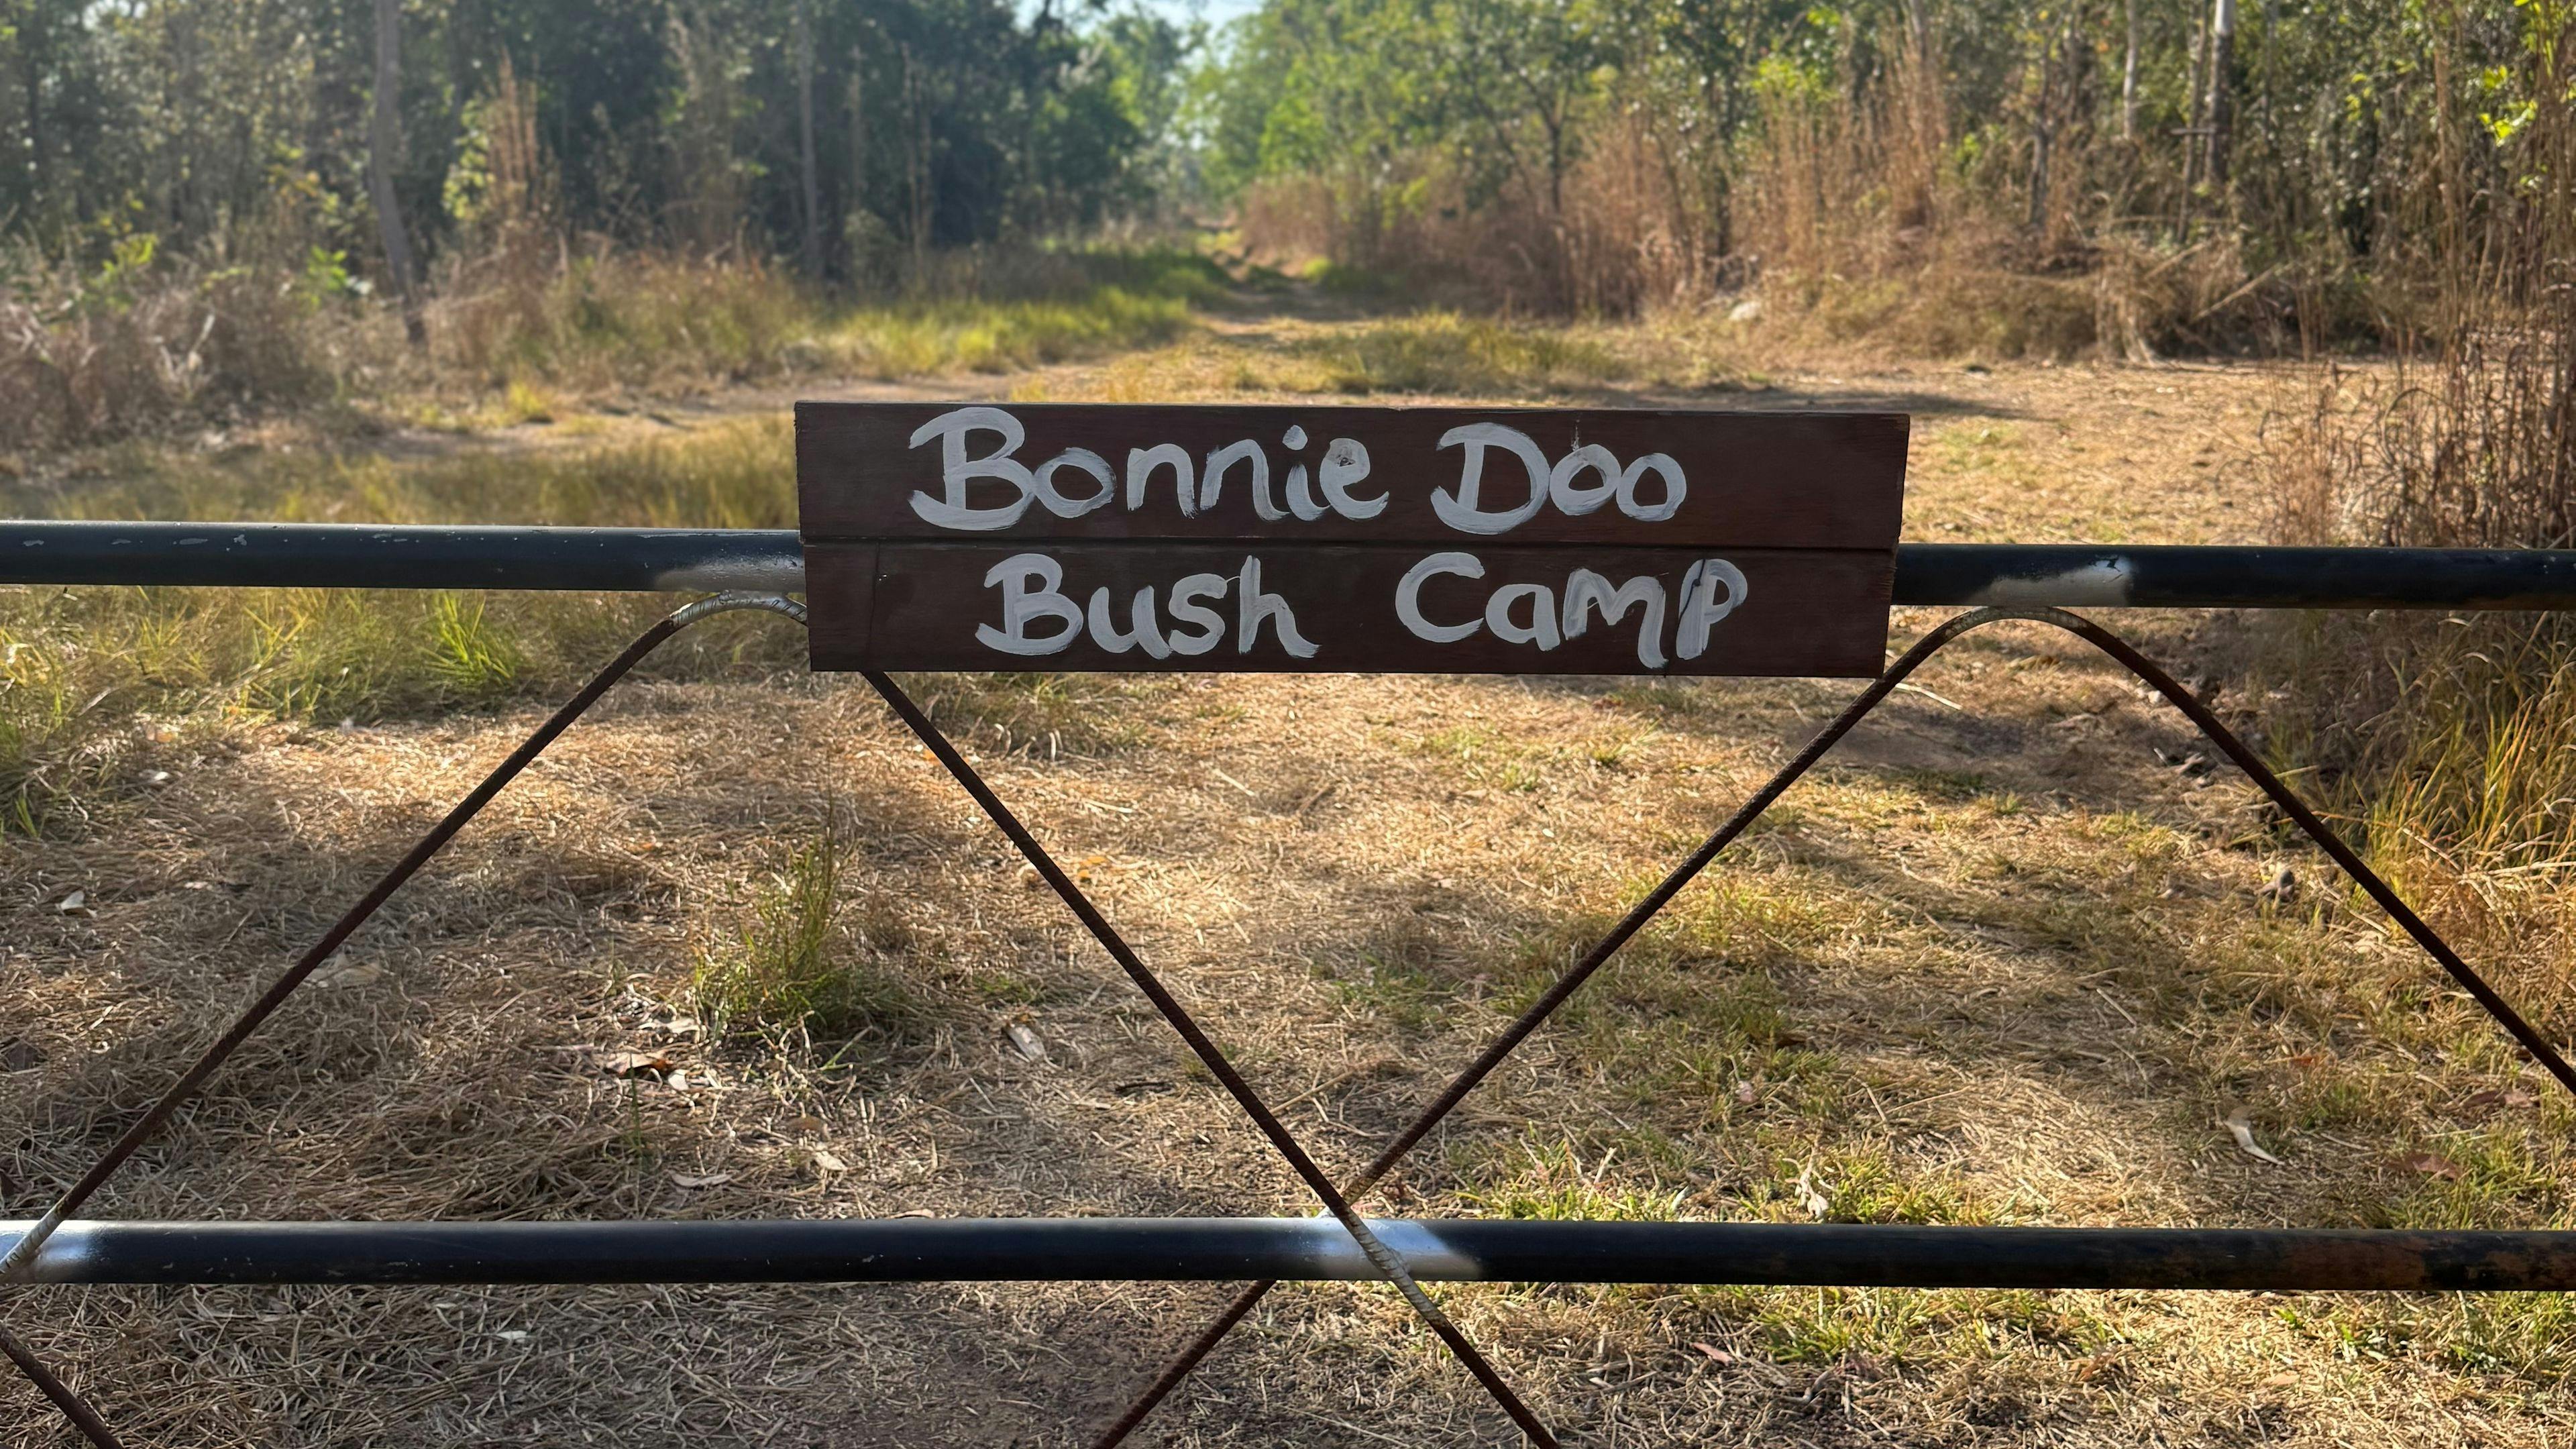 Bonnie Doo
Bush Camp